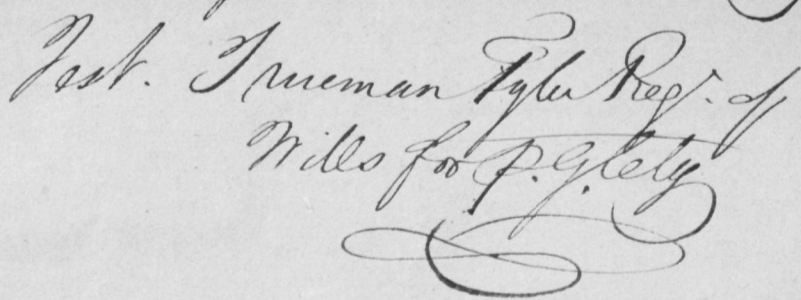 Test. Trueman Tyler Regr. of
Wills for P. G. Cty